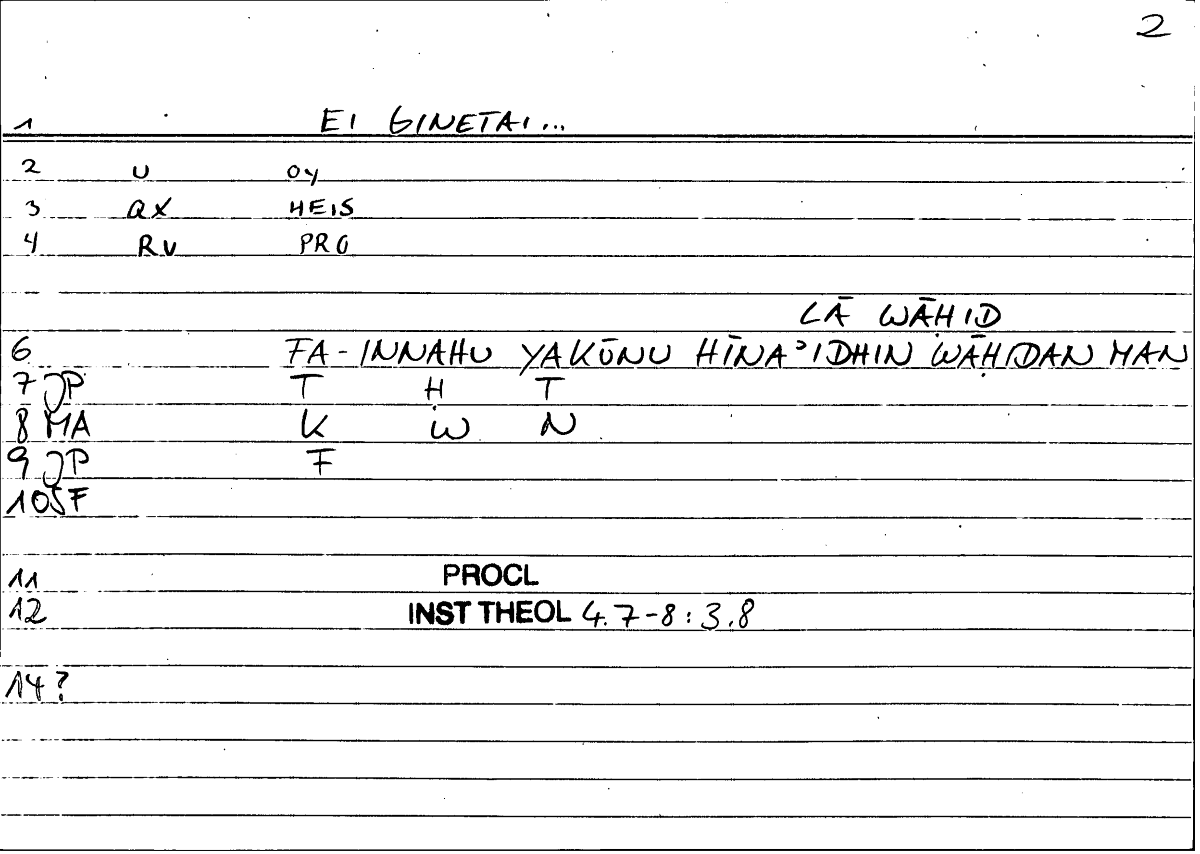 2
1 EI GINETAI...
2 U OY
3 QX HEIS
4 RV PRO
LĀ WĀḤID
6 FA-INNAHU YAKŪNU ḤĪNAʾIDHIN WĀḤIDAN MAN
7 JP T Ḥ T
8 MA K W N
9 JP F
10 SF
11 PROCL
12 INST THEOL 4.7-8:3.8
14?